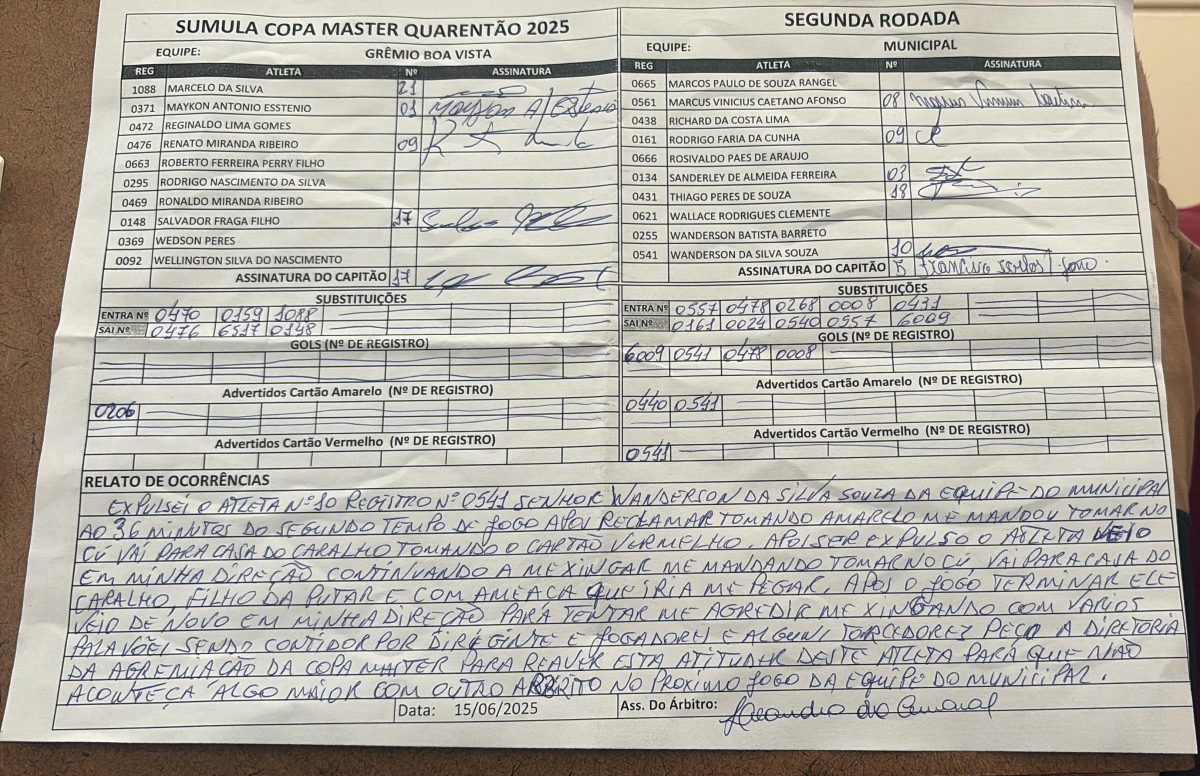 SUMULA COPA MASTER QUARENTÃO 2025
EQUIPE: GRÊMIO BOA VISTA
REG ATLETA Nº ASSINATURA
1088 MARCELO DA SILVA 21
0371 MAYKON ANTONIO ESSTENIO 01 Maykon A Esstenio
0472 REGINALDO LIMA GOMES
0476 RENATO MIRANDA RIBEIRO 09
0663 ROBERTO FERREIRA PERRY FILHO
0295 RODRIGO NASCIMENTO DA SILVA
0469 RONALDO MIRANDA RIBEIRO
0148 SALVADOR FRAGA FILHO 17
0369 WEDSON PERES
0092 WELLINGTON SILVA DO NASCIMENTO
ASSINATURA DO CAPITÃO 17
SUBSTITUIÇÕES
ENTRA Nº 0470 0159 1088
SAI Nº 0476 6517 0148
GOLS (Nº DE REGISTRO)
Advertidos Cartão Amarelo (Nº DE REGISTRO)
0206
Advertidos Cartão Vermelho (Nº DE REGISTRO)
SEGUNDA RODADA
EQUIPE: MUNICIPAL
REG ATLETA Nº ASSINATURA
0665 MARCOS PAULO DE SOUZA RANGEL
0561 MARCUS VINICIUS CAETANO AFONSO 08
0438 RICHARD DA COSTA LIMA
0161 RODRIGO FARIA DA CUNHA 09
0666 ROSIVALDO PAES DE ARAUJO
0134 SANDERLEY DE ALMEIDA FERREIRA 03
0431 THIAGO PERES DE SOUZA 18
0621 WALLACE RODRIGUES CLEMENTE
0255 WANDERSON BATISTA BARRETO
0541 WANDERSON DA SILVA SOUZA 10
ASSINATURA DO CAPITÃO Francisco Carlos
SUBSTITUIÇÕES
ENTRA Nº 0557 0478 0268 0008 0431
SAI Nº 0161 0024 0540 0557 6009
GOLS (Nº DE REGISTRO)
6009 0541 0478 0008
Advertidos Cartão Amarelo (Nº DE REGISTRO)
0440 0541
Advertidos Cartão Vermelho (Nº DE REGISTRO)
0541
RELATO DE OCORRÊNCIAS
EXPULSEI O ATLETA Nº 10 REGISTRO Nº 0541 SENHOR WANDERSON DA SILVA SOUZA DA EQUIPE DO MUNICIPAL
AO 36 MINUTOS DO SEGUNDO TEMPO DE JOGO APOS RECLAMAR TOMANDO AMARELO ME MANDOU TOMAR NO
CÚ VAI PARA CASA DO CARALHO TOMANDO O CARTÃO VERMELHO. APOS SER EXPULSO O ATLETA VEIO
EM MINHA DIREÇÃO CONTINUANDO A ME XINGAR ME MANDANDO TOMAR NO CÚ, VAI PARA CASA DO
CARALHO, FILHO DA PUTAR E COM AMEAÇA QUERIA ME PEGAR. APOS O JOGO TERMINAR ELE
VEIO DE NOVO EM MINHA DIREÇÃO PARA TENTAR ME AGREDIR ME XINGANDO COM VARIOS
PALAVÕES SENDO CONTIDOR POR DIREGINTE E JOGADORES E ALGUNS TORCEDORES PEÇO A DIRETORIA
DA AGREMIAÇÃO DA COPA MASTER PARA REAVER ESTA ATITUDER DESTE ATLETA PARA QUE NÃO
ACONTEÇA ALGO MAIOR COM OUTRO ARBITO NO PROXIMO JOGO DA EQUIPE DO MUNICIPAL.
Data: 15/06/2025 Ass. Do Árbitro: Leandro do Amaral